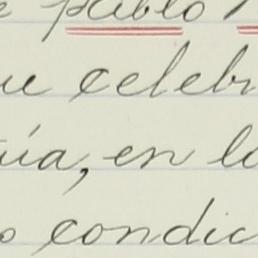 pablo
ue celebr
úa, en lo
o condic